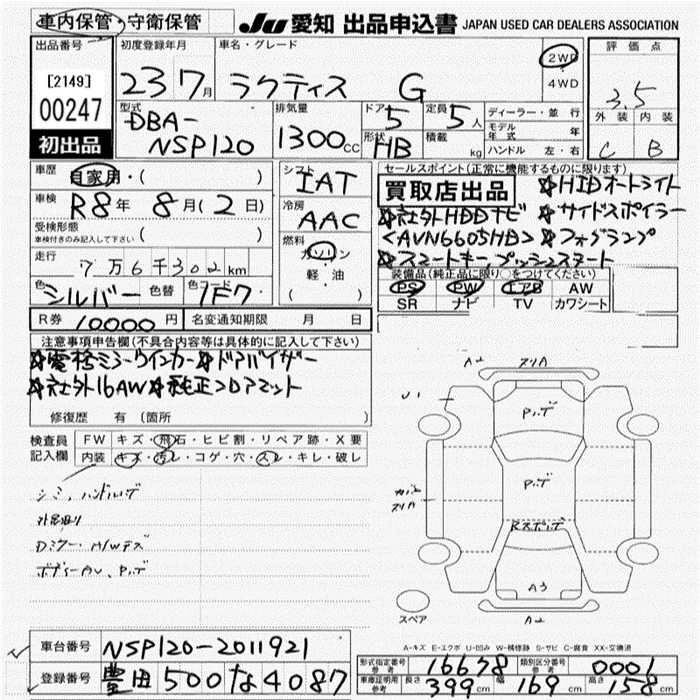 車内保管・守衛保管
JU 愛知 出品申込書 JAPAN USED CAR DEALERS ASSOCIATION
出品番号 初度登録年月 車名・グレード 2WD 4WD 評価点
[2149]
00247
初出品
23 7月 ラクティス G
3.5
型式 排気量 ドア 定員 ディーラー・並行 外装 内装
DBA-NSP120 1300cc 5 5人 モデル年式 年
形状 HB 積載 kg ハンドル 左・右 C B
車歴 自家用・( )
シフト IAT
セールスポイント(正常に機能するものに限ります)
買取店出品 ☆HIDオートライト
車検 R8年 8月(2日)
冷房 AAC
☆社外HDDナビ ☆サイドスポイラー
受検形態 車検付きのみ記入して下さい ( )
<AVN6605HD> ☆フォグランプ
燃料 ガソリン 軽・油 ( )
☆スマートキー プッシュスタート
走行 7万6千302km
装備品(純正品に限り○をつけてください)
PS PW エアB AW
SR ナビ TV カワシート
色 シルバー 色替 色コード 1F7
R券 10000円 名変通知期限 月 日
注意事項申告欄(不具合内容等は具体的に記入して下さい)
☆電格ミラーウインカー☆ドアバイザー
☆社外16AW☆純正フロアマット
修復歴 有(箇所
検査員記入欄 FW キズ・飛石・ヒビ割・リペア跡・X要
内装 キズ・汚レ・コゲ・穴・スレ・キレ・破レ
シミ、ハンドル
Dミラー・
ボディー
A2 スリA
U1
スリA
A3
A2
スペア
A-キズ E-エクボ U-凹み W-補修跡 S-サビ C-腐食 XX-交換済
車台番号 NSP120-2011921
登録番号 豊田500な4087
形式指定番号 参考 16678 類別区分番号 参考 0001
車庫証明用 参考 長さ 399cm 幅 169cm 高さ 158cm